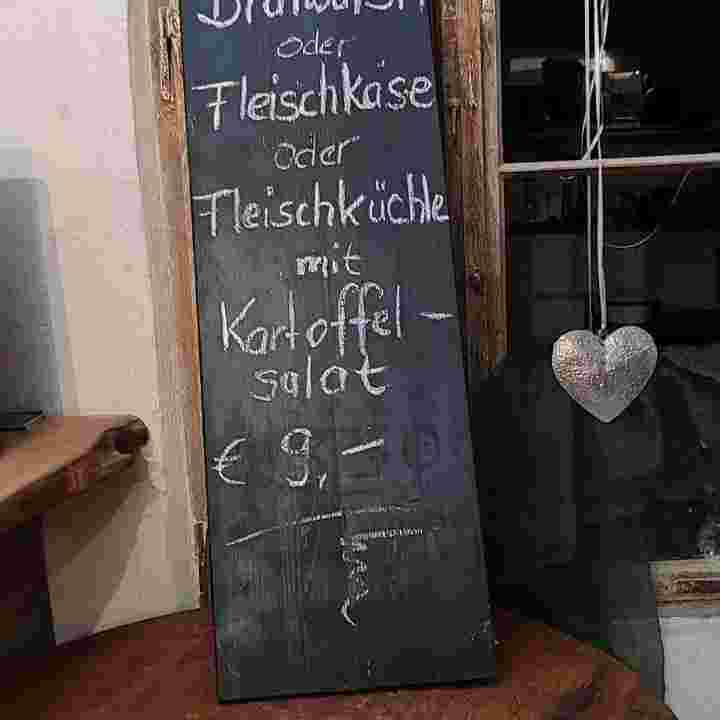 Bratwurst
oder
Fleischkäse
oder
Fleischküchle
mit
Kartoffel-
salat
€ 9,-